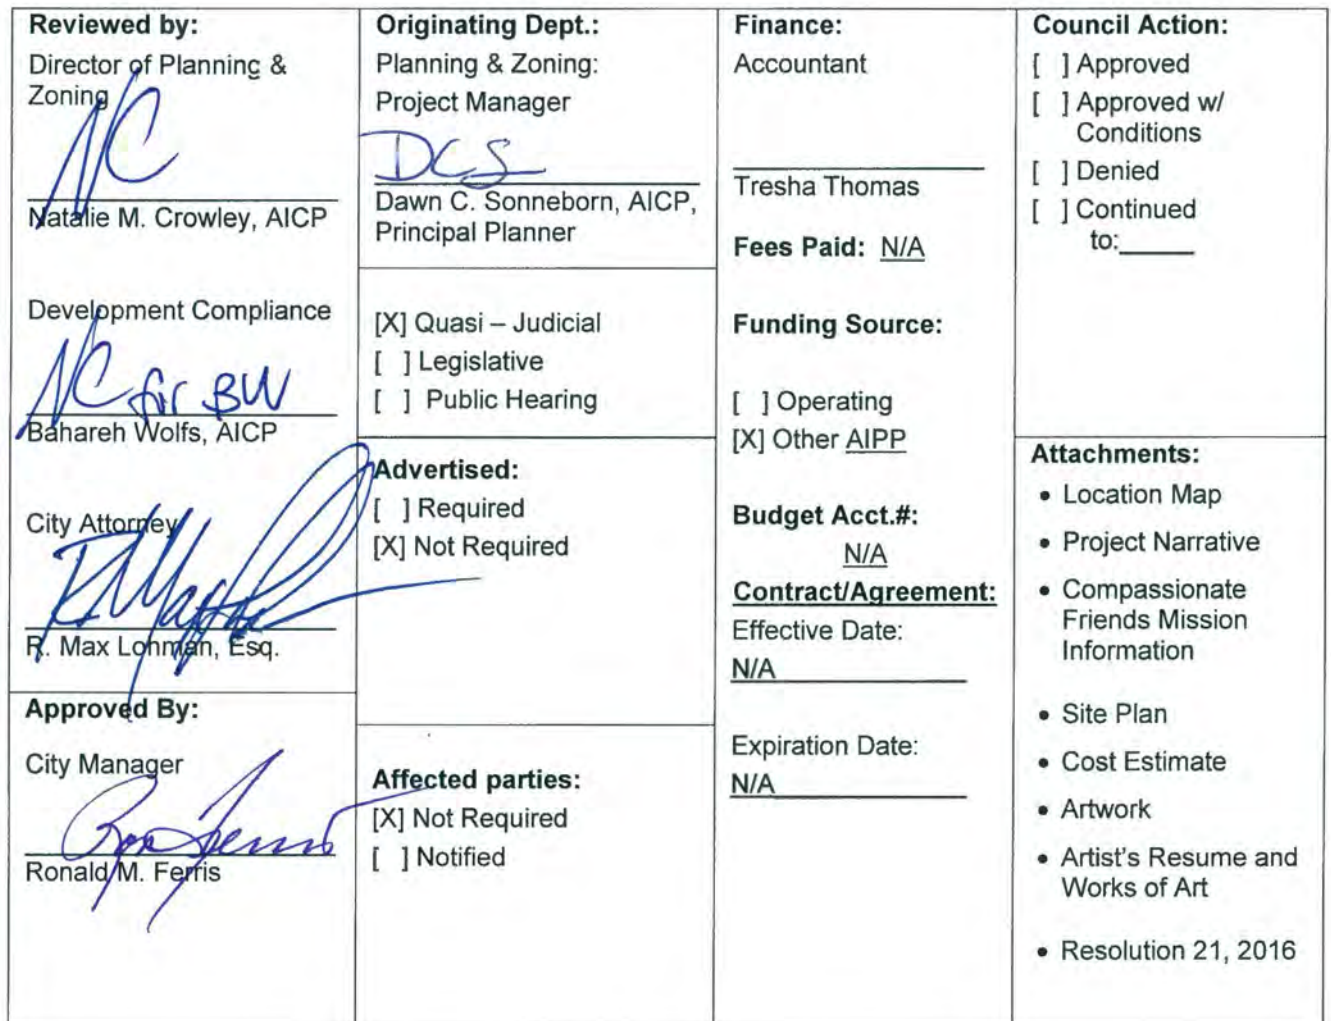 Reviewed by:
Director of Planning &
Zoning
NC
Natalie M. Crowley, AICP
Development Compliance
NC for BW
Bahareh Wolfs, AICP
City Attorney
R. Max Lohman, Esq.
Approved By:
City Manager
Ronald M. Ferris
Originating Dept.:
Planning & Zoning:
Project Manager
DCS
Dawn C. Sonneborn, AICP,
Principal Planner
[X] Quasi – Judicial
[ ] Legislative
[ ] Public Hearing
Advertised:
[ ] Required
[X] Not Required
Affected parties:
[X] Not Required
[ ] Notified
Finance:
Accountant
Tresha Thomas
Fees Paid: N/A
Funding Source:
[ ] Operating
[X] Other AIPP
Budget Acct.#:
N/A
Contract/Agreement:
Effective Date:
N/A
Expiration Date:
N/A
Council Action:
[ ] Approved
[ ] Approved w/
Conditions
[ ] Denied
[ ] Continued
to:_____
Attachments:
• Location Map
• Project Narrative
• Compassionate
Friends Mission
Information
• Site Plan
• Cost Estimate
• Artwork
• Artist's Resume and
Works of Art
• Resolution 21, 2016